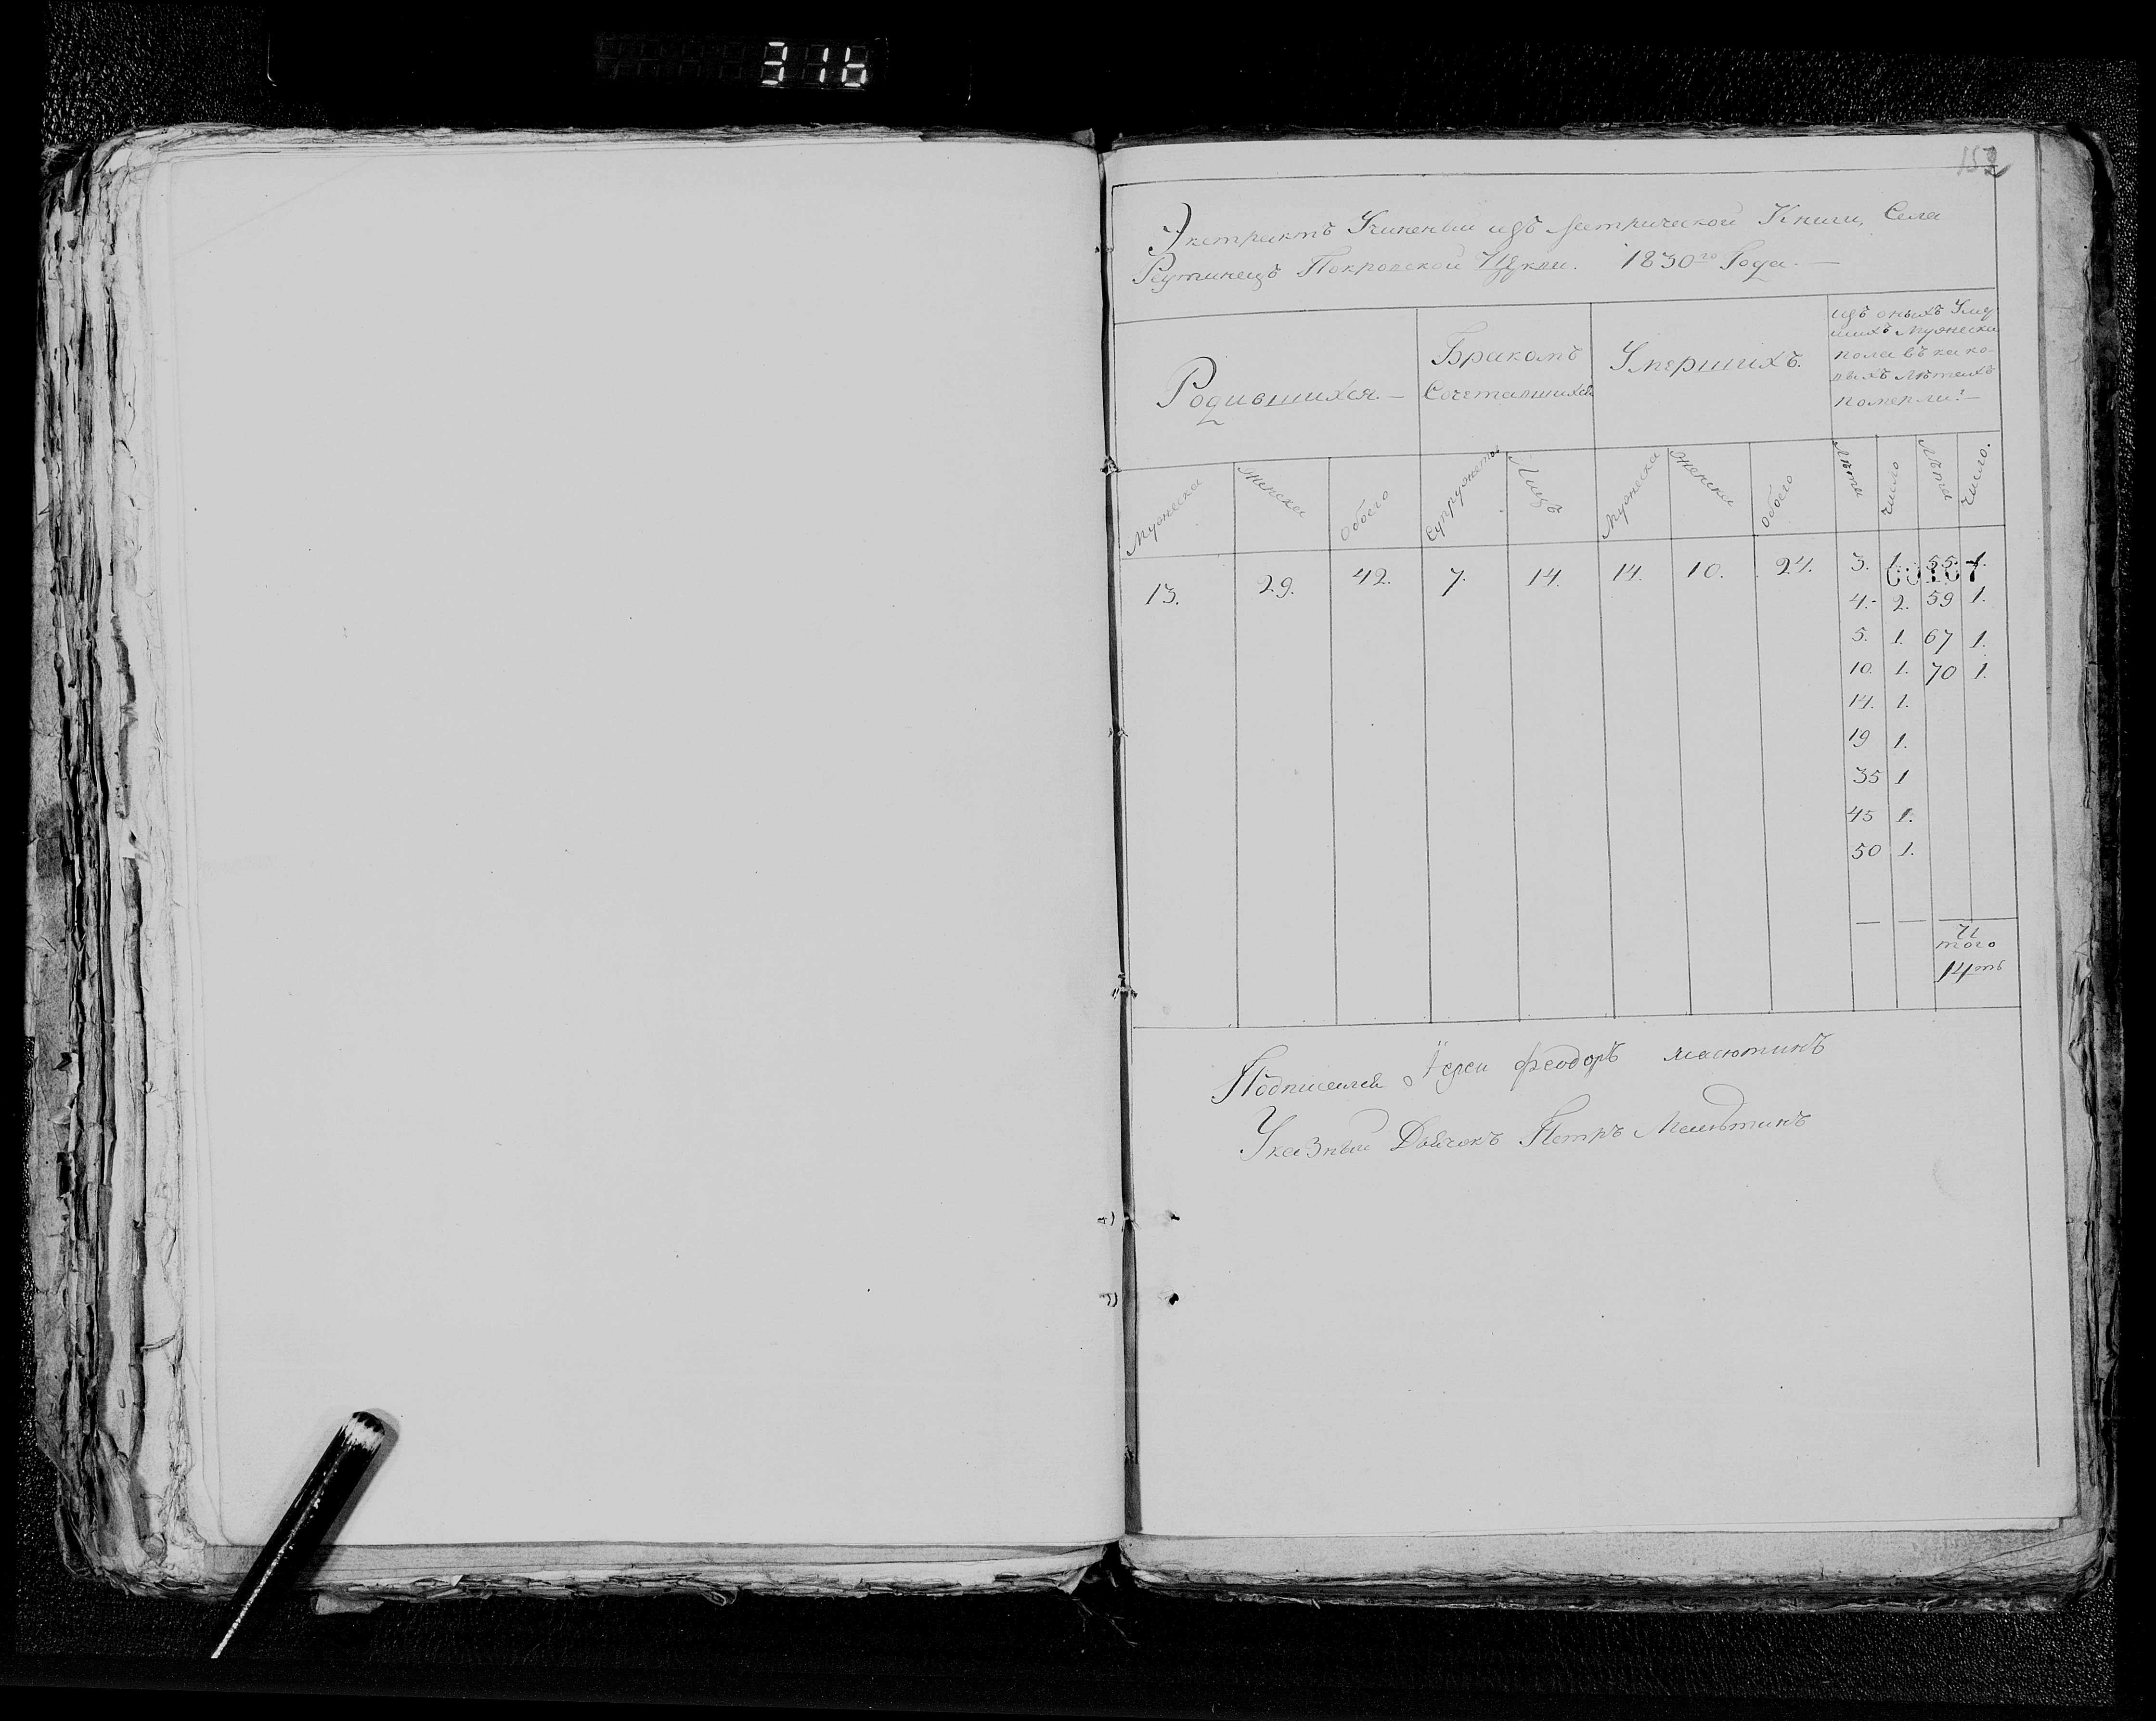 316
152
Экстрактъ Учиненый изъ Метрической Книги, Села
Реутинецъ Покровской Цркви. 1830го Года.—
Родившихся.—
Бракомъ
Сочетавшихся
Умершихъ.
изъ оныхъ Уме
шихъ Мужеска
пола въ како-
выхъ лѣтахъ
померли:—
Мужеска
Женска
Обоего
Супружетвъ
Лицъ
Мужеска
Женска
Обоего
Лѣта
число
Лѣта
число.
13. 29. 42. 7. 14. 14. 10. 24. 3. 1. 55. 1.
4.- 2. 59 1.
5. 1. 67 1.
10. 1. 70 1.
14. 1.
19 1.
35 1
45 1.
50 1.
— —
И
того
14ть
Подписался Іерей Феодоръ Масютинъ
Указный Дьячокъ Петръ Масютинъ